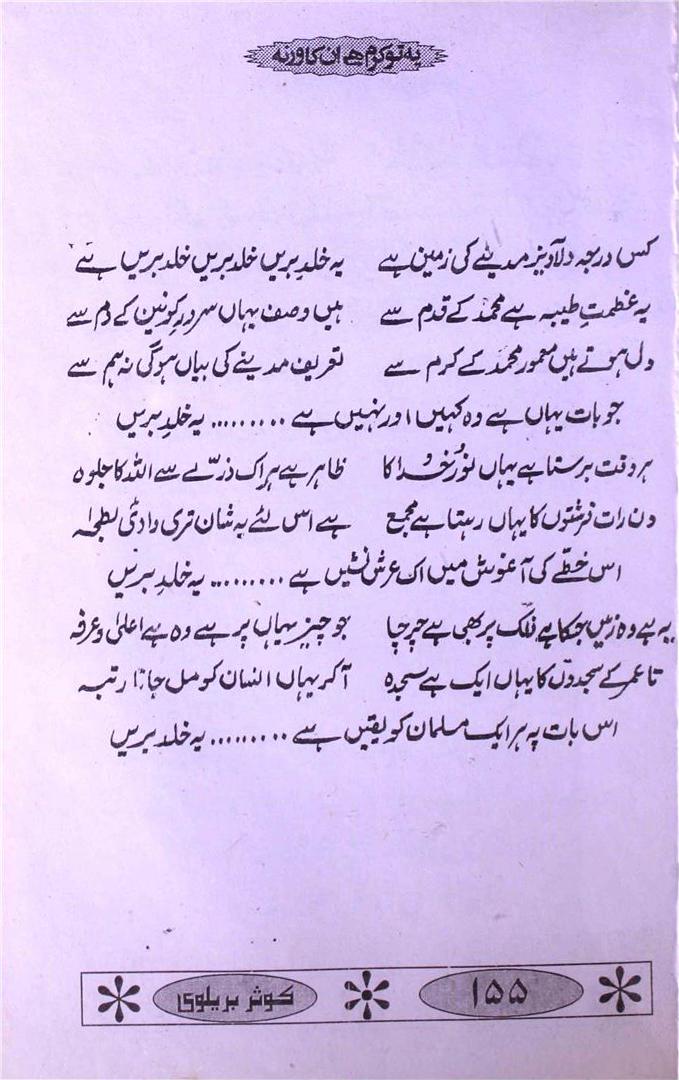 یہ تو کرم ہے ان کا ورنہ
کس درجہ دلآویز مدینے کی زمین ہے یہ خلدِ بریں خلدِ بریں خلدِ بریں ہے
یہ عظمتِ طیبہ ہے محمدؐ کے قدم سے ہیں وصف یہاں سرورِ کونین کے دم سے
دل ہوتے ہیں معمور محمدؐ کے کرم سے تعریف مدینے کی بیاں ہوگی نہ ہم سے
جو بات یہاں ہے وہ کہیں اور نہیں ہے ......... یہ خلدِ بریں
ہر وقت برستا ہے یہاں نورِ خدا کا ظاہر ہے ہر اک ذرّے سے اللہ کا جلوہ
دن رات فرشتوں کا یہاں رہتا ہے مجمع ہے اس لئے یہ شان تری وادیٔ بطحہٰ
اس خطّے کی آغوش میں اک عرش نشیں ہے ......... یہ خلدِ بریں
یہ ہے وہ زمیں جسکا ہے فلک پر بھی ہے چرچا جو چیز یہاں پر ہے وہ ہے اعلیٰ و عرفہ
تا عمر کے سجدوں کا یہاں ایک ہے سجدہ آکر یہاں انسان کو مل جاتا رتبہ
اس بات پہ ہر ایک مسلمان کو یقیں ہے ......... یہ خلد بریں
۱۵۵ کوثر بریلوی